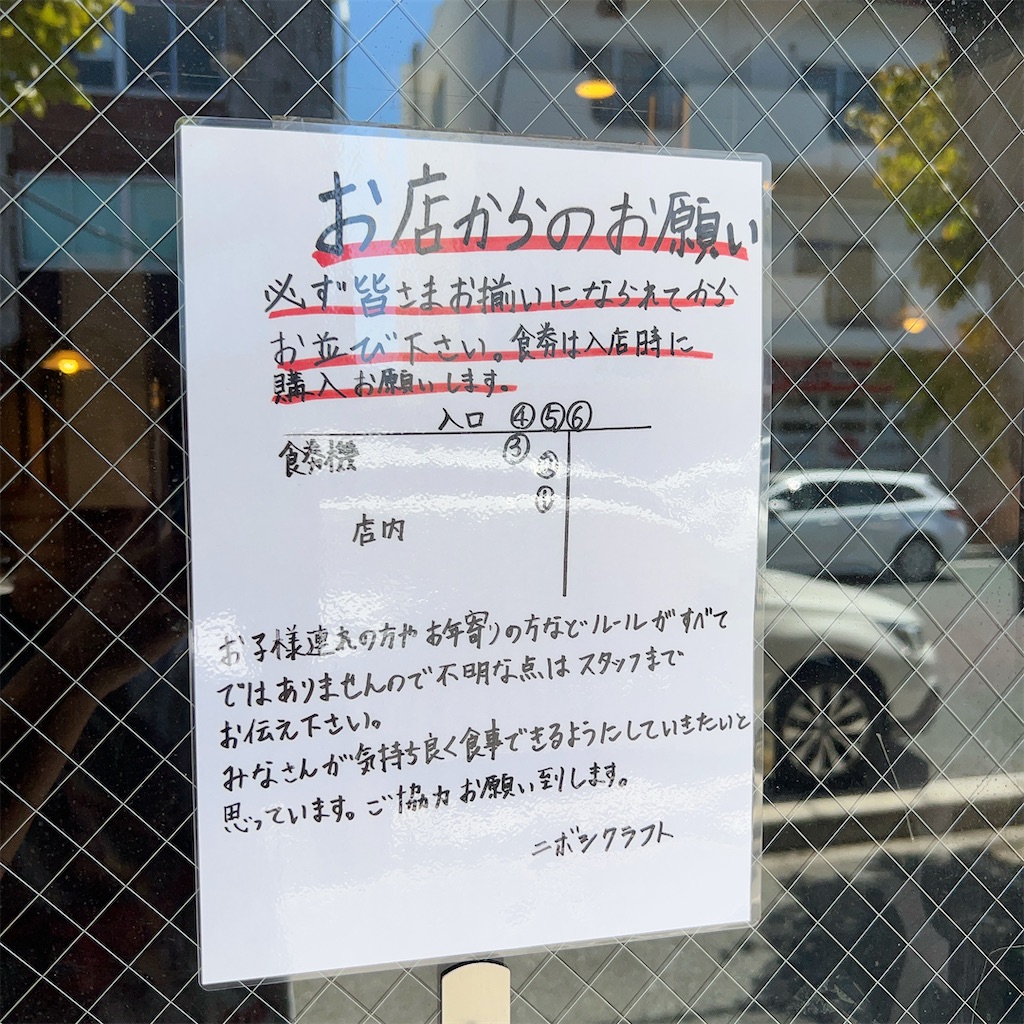 お店からのお願い
必ず皆さまお揃いになられてから
お並び下さい。食券は入店時に
購入お願いします。
入口 ④⑤⑥
食券機 ③
②
①
店内
お子様連れの方や お年寄りの方などルールがすべて
ではありませんので不明な点は スタッフまで
お伝え下さい。
みなさんが気持ち良く食事できるようにしていきたいと
思っています。ご協力お願い到します。
ニボシクラフト